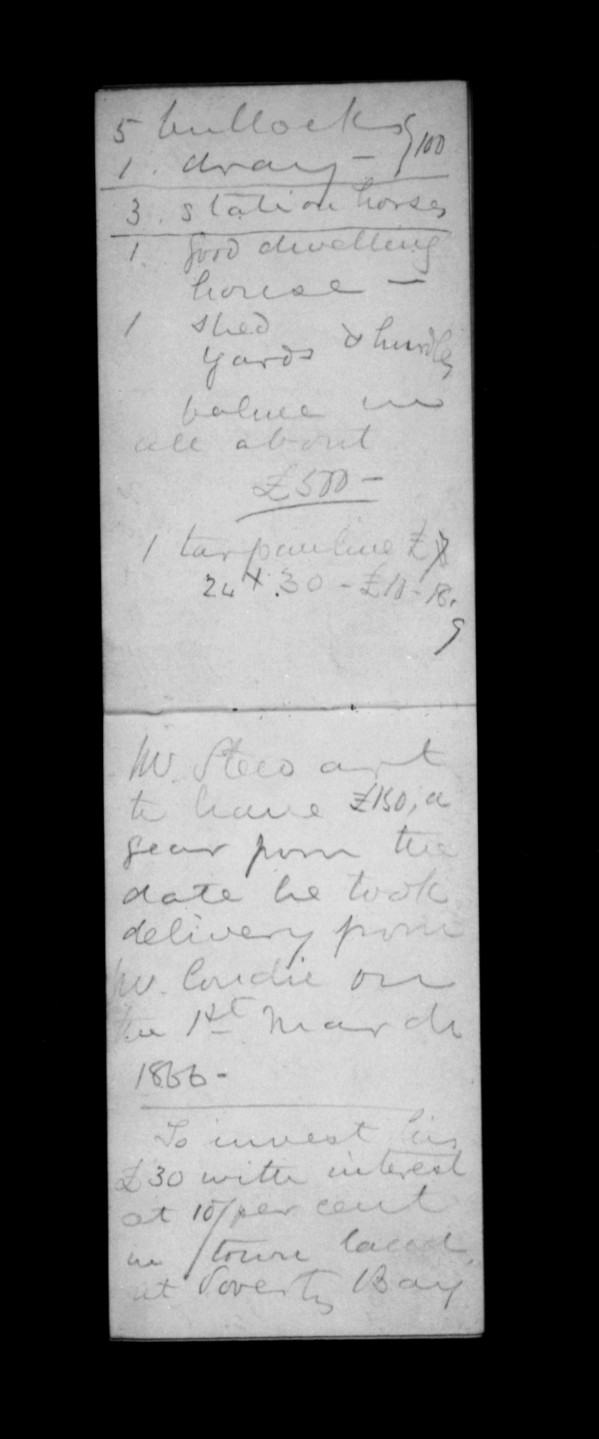 5 bullocks } 100
1. dray -
3. station horses
1 good dwelling
house -
1 shed
yards & hurdles
value in
all about
£500 -
1 tarpauline £
24 x 30 - £11 - 18.
9
Mr. a/ct
to have £150, a
year from the
date he took
delivery from
Mr. Condie on
the 1st March
1866 -
To invest his
£30 with interest
at 10/per cent
in town land
at Poverty Bay